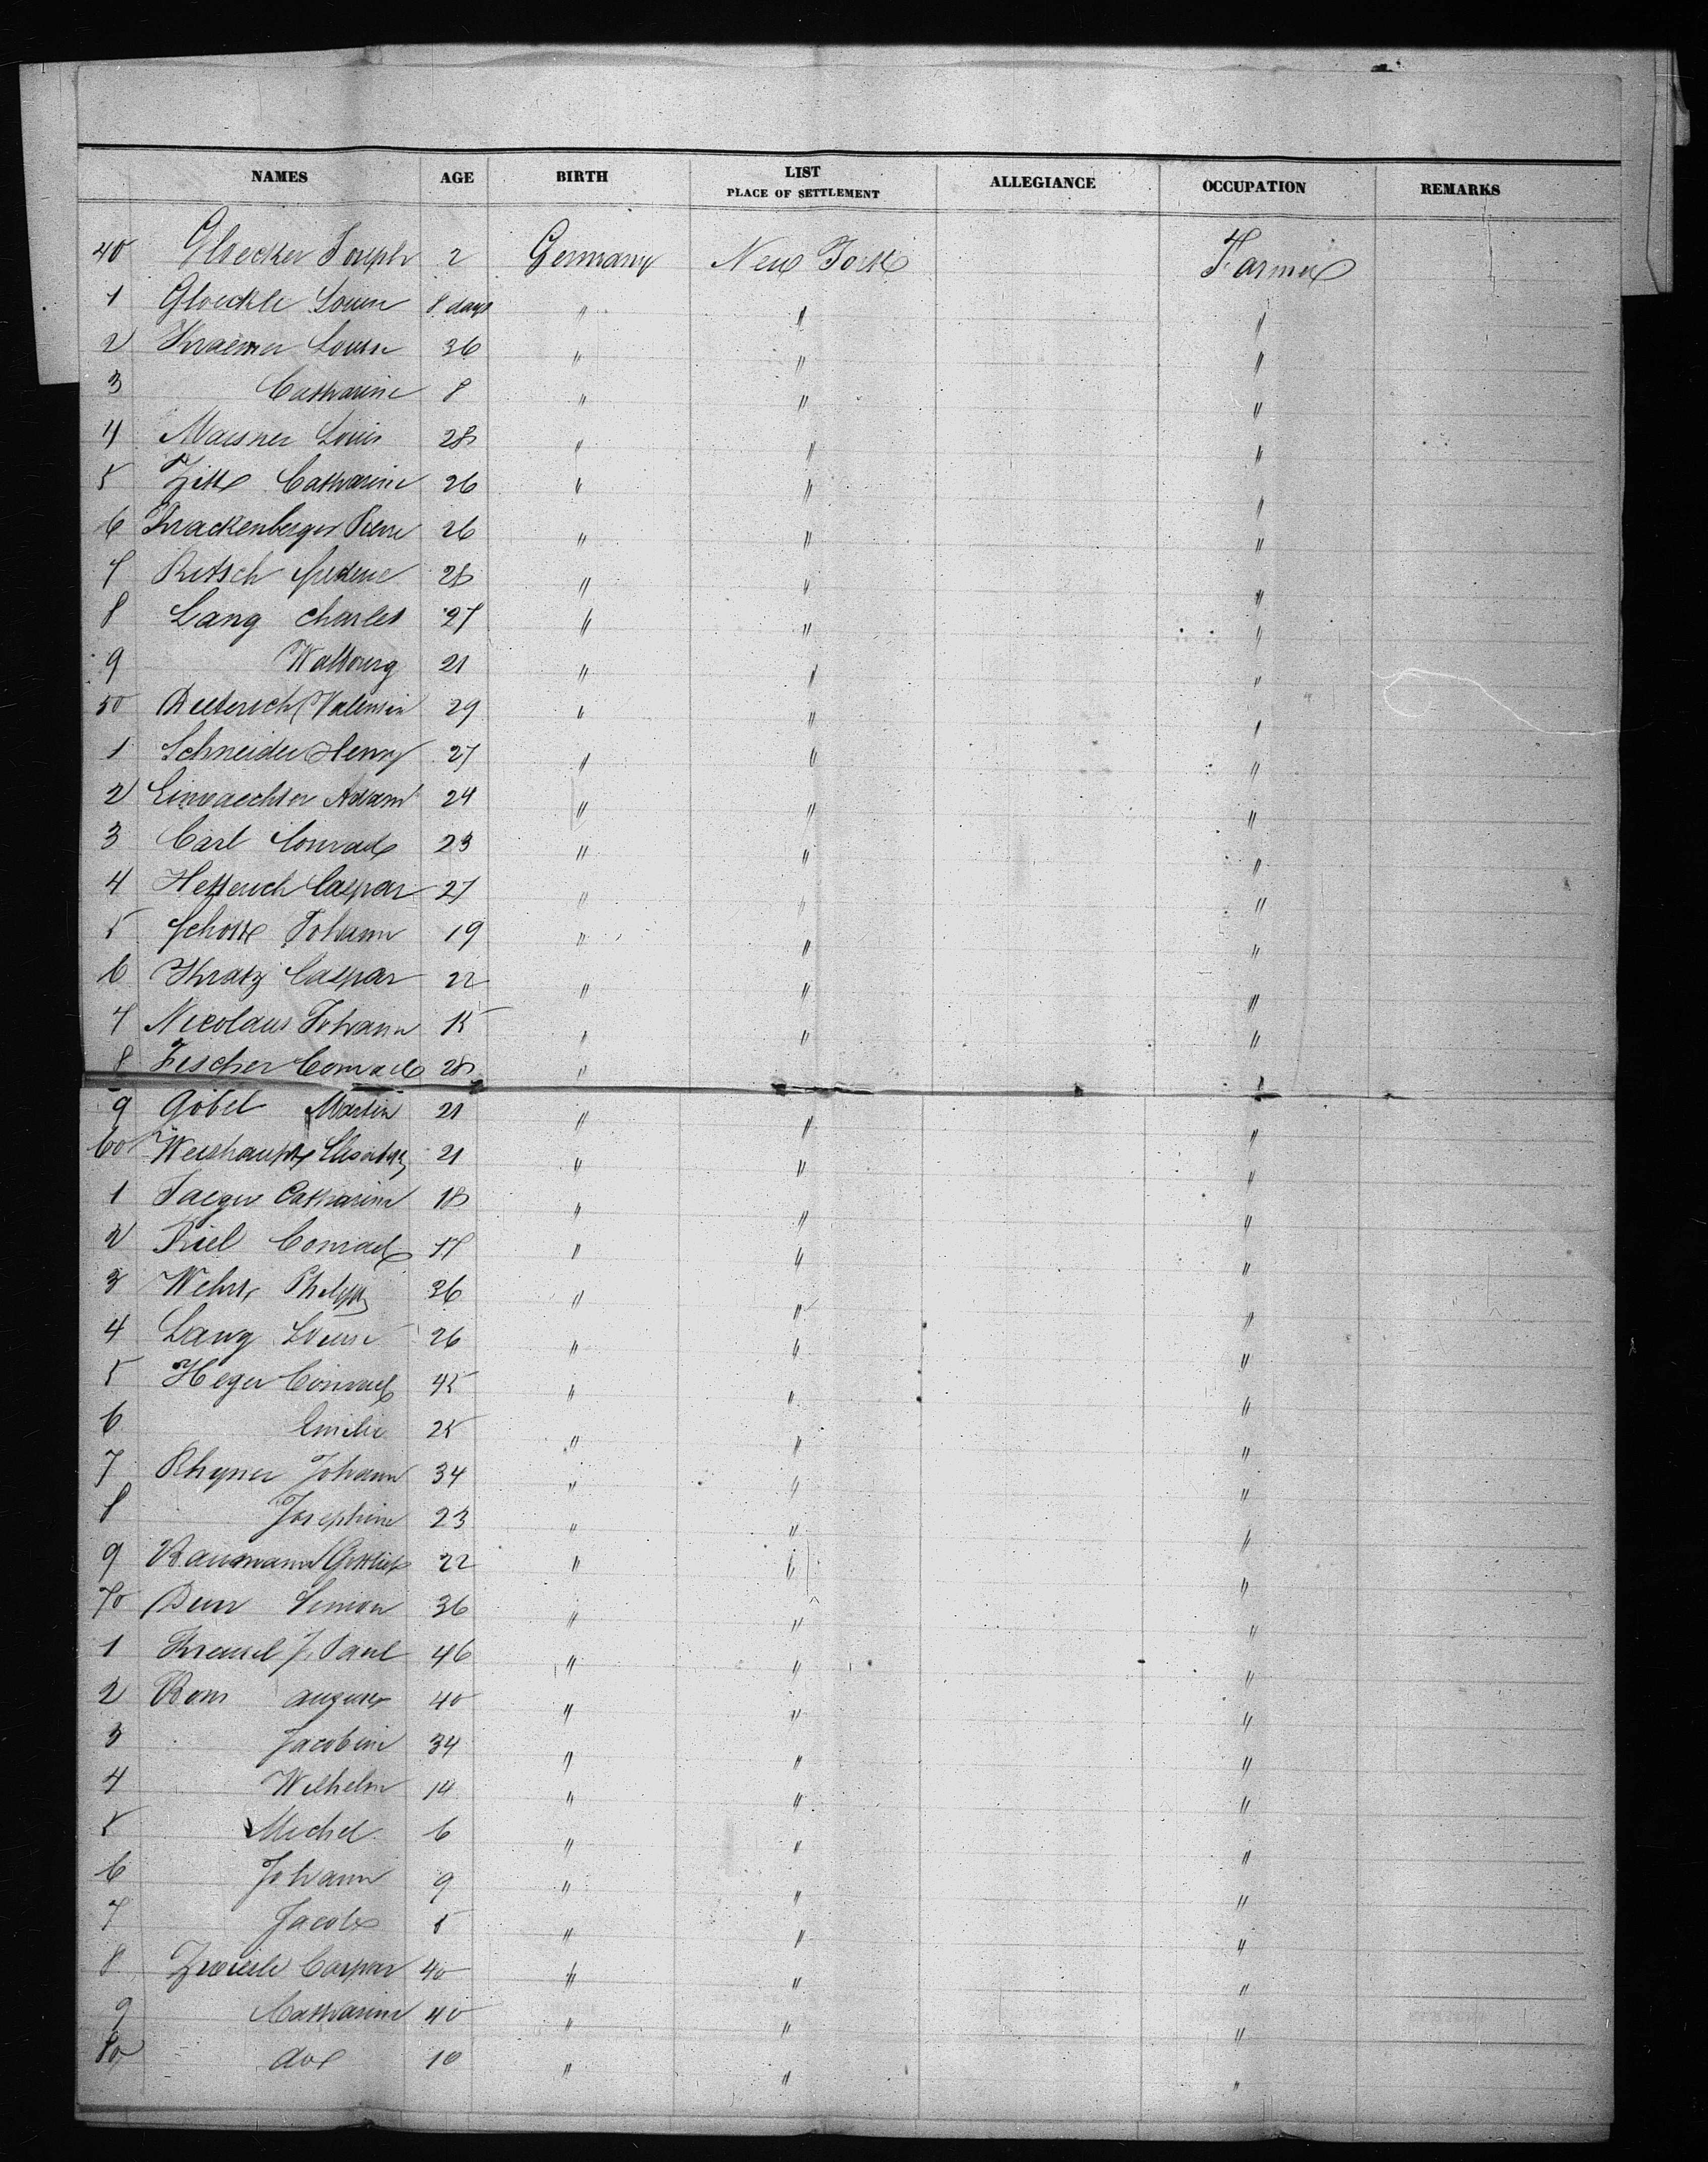 NAMES AGE BIRTH LIST PLACE OF SETTLEMENT ALLEGIANCE OCCUPATION REMARKS
40 Gloecker Joseph 2 Germany New York Farmer
1 Gloeckle Louise 8 days " " "
2 Kraemer Louise 36 " " "
3 Catharine 8 " " "
4 Maisner Louis 28 " " "
5 Zitt Catharine 26 " " "
6 Krackenberger Pierre 26 " " "
7 Ritsch frederic 28 " " "
8 Lang Charles 27 " " "
9 Walbourg 21 " " "
50 Dieterich Valentin 29 " " "
1 Schneider Henry 27 " " "
2 Einvaechter Adam 24 " " "
3 Carl Conrad 23 " " "
4 Hetterich Caspar 27 " " "
5 Schott Johann 19 " " "
6 Kratz Caspar 22 " " "
7 Nicolaus Johann 15 " " "
8 Fischer Conrad 28 " "
9 Göbel Martin 21 " " "
60 Weishaupt Elisabeth 21 " " "
1 Jaeger Catharine 18 " " "
2 Riel Conrad 17 " " "
3 Wehrt Philipp 36 " " "
4 Lang Louise 26 " " "
5 Heger Conrad 45 " " "
6 Emilie 25 " " "
7 Rhyner Johann 34 " " "
8 Josephine 23 " " "
9 Baumann Gottlieb 22 " " "
70 Durr Simon 36 " " "
1 J. Paul 46 " " "
2 August 40 " " "
3 Jacobine 34 " " "
4 Wilhelm 14 " " "
5 Michel 6 " " "
6 Johann 9 " " "
7 Jacob 5 " " "
8 Caspar 40 " " "
9 Catharine 40 " " "
80 do 10 " " "